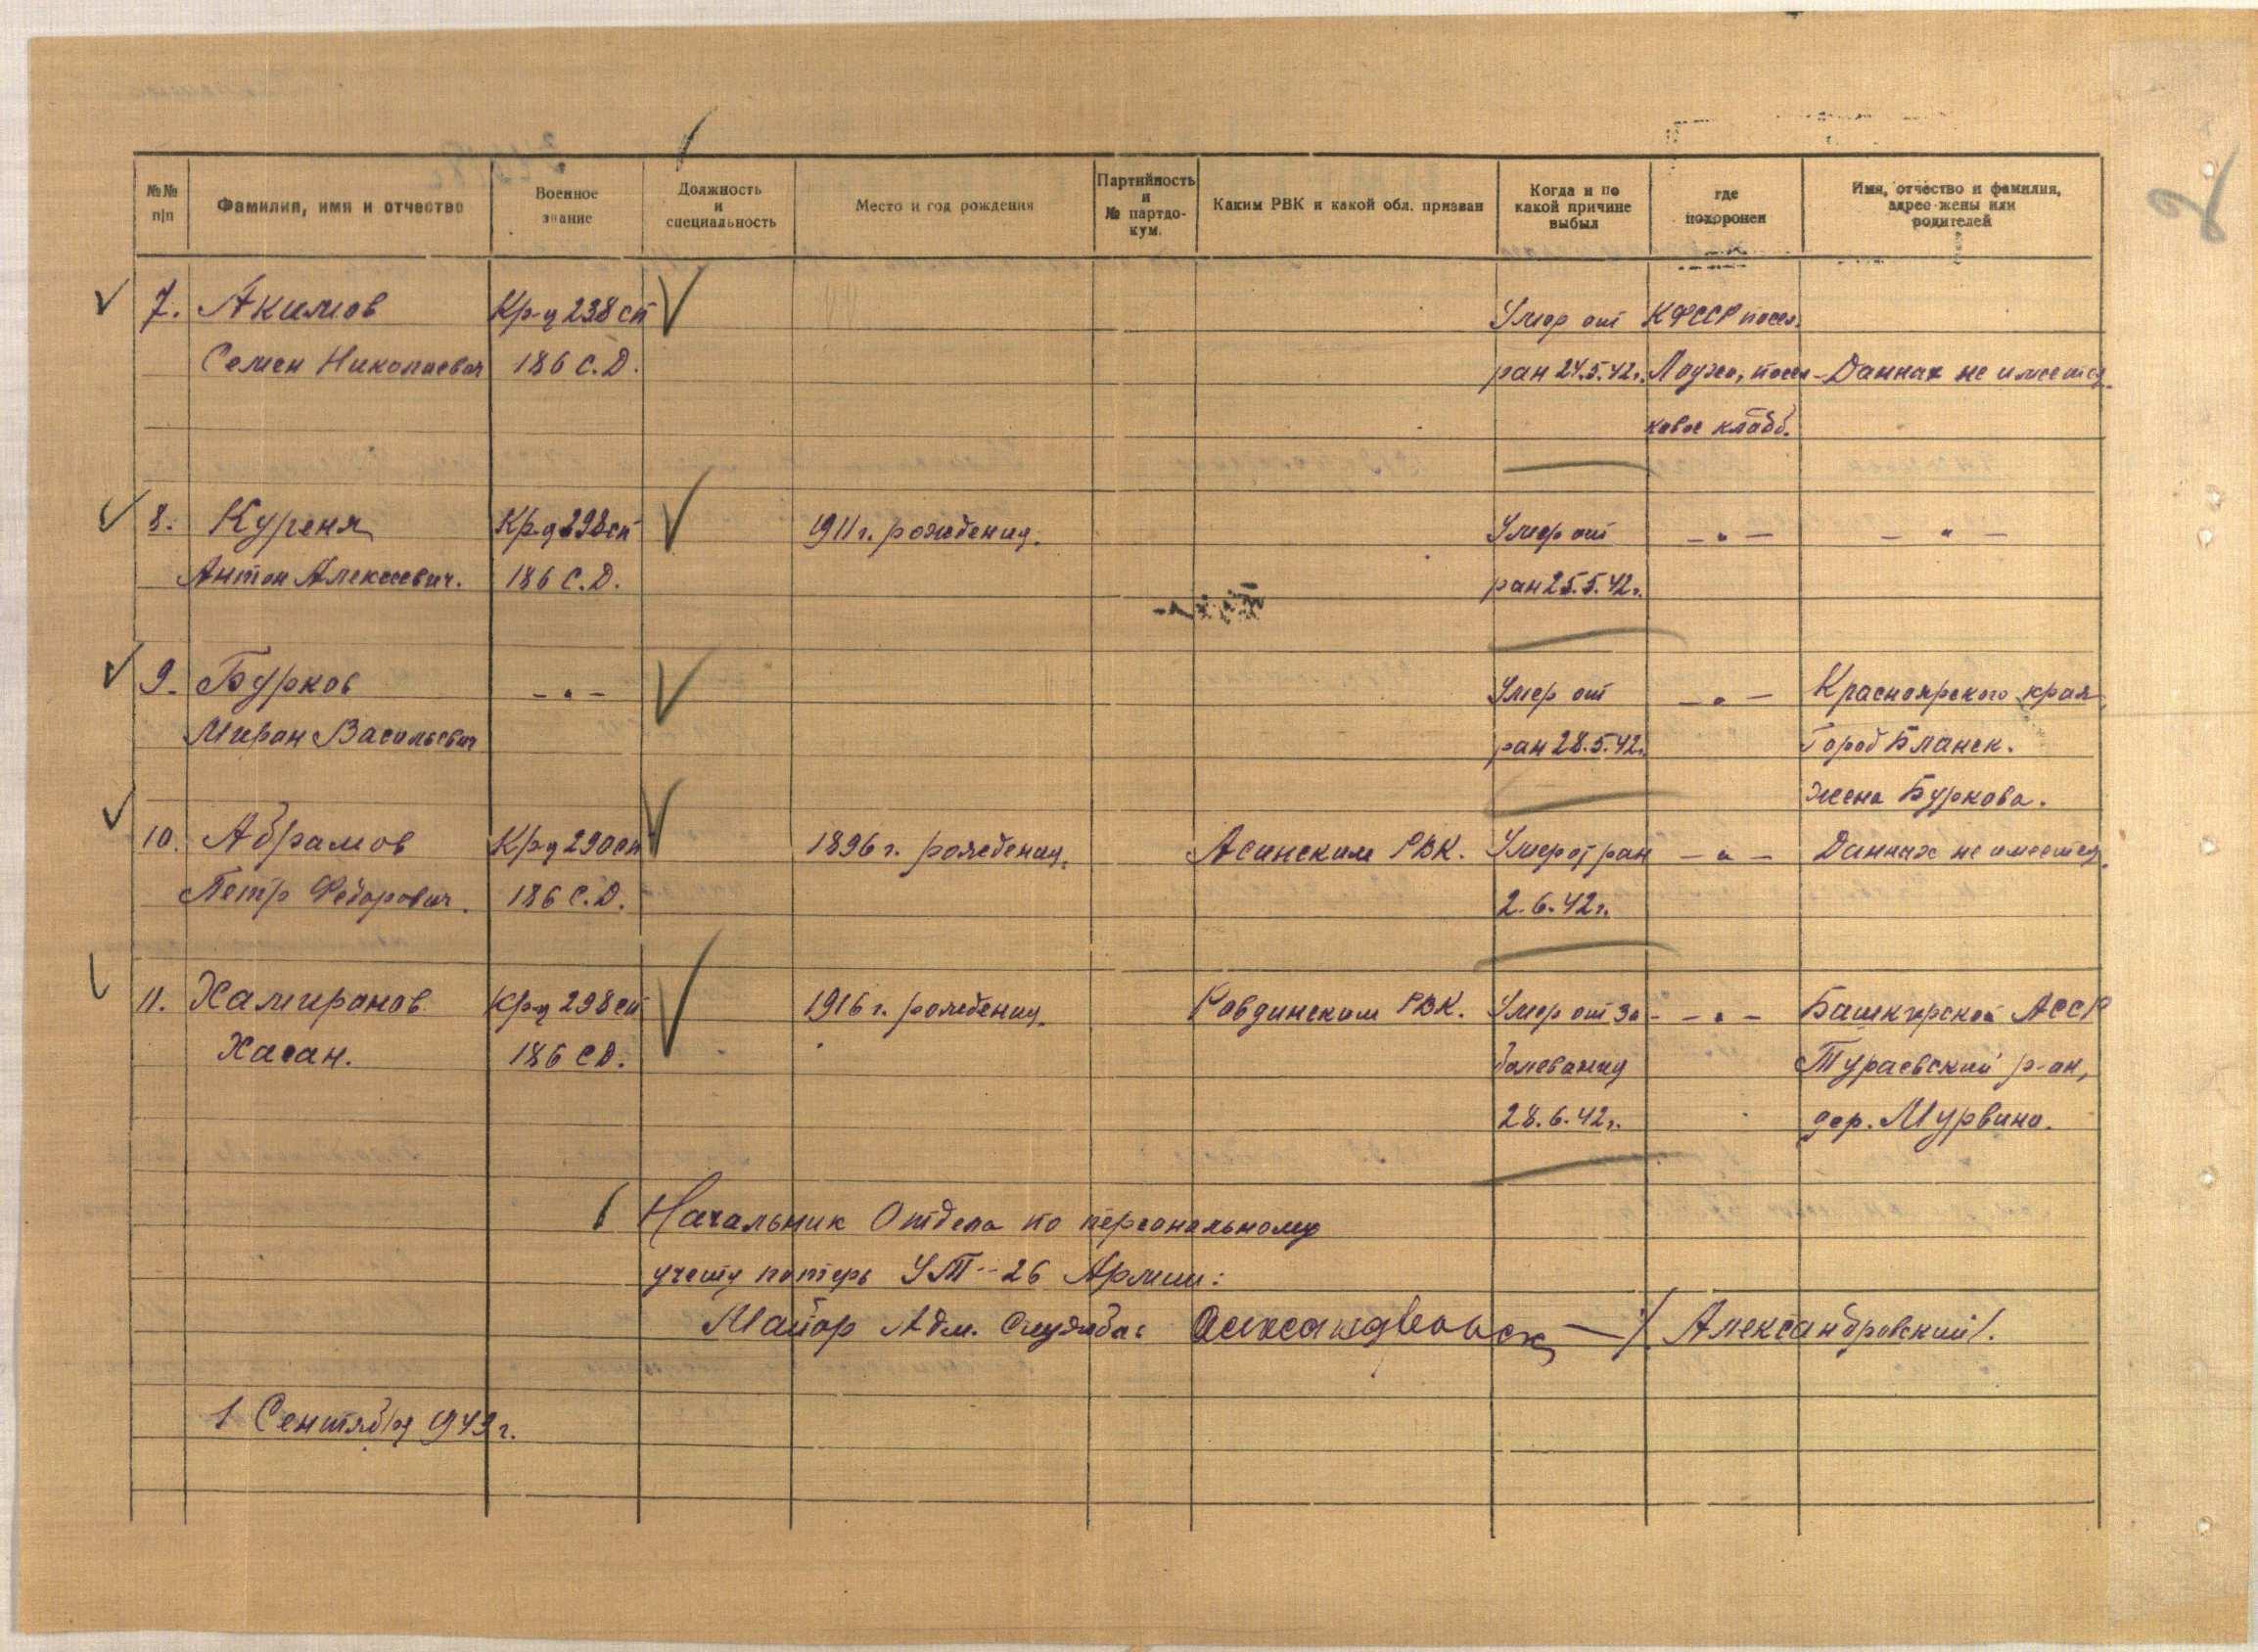 №№ п/п Фамилия, имя и отчество Военное звание Должность и специальность Место и год рождения Партийность и № партдокум. Каким РВК и какой обл. призван Когда и по какой причине выбыл где похоронен Имя, отчество и фамилия, адрес жены или родителей
7. Акимов Кр-ц 238 сп Умер от КФССР посел.
Семен Николаевич 186 С.Д. ран 24.5.42г. Лоухи, посел- Данных не имеется.
ковое кладб.
8. Куреня Кр-ц 298 сп 1911 г. рождения. Умер от -"- -"-
Антон Алексеевич. 186 С.Д. ран 25.5.42г.
9. Бурков -"- Умер от -"- Красноярского края,
Миран Васильевич ран 28.5.42г. Город Бланск.
жена Буркова.
10. Абрамов Кр-ц 290 сп 1896 г. рождения. Асинским РВК. Умер от ран -"- Данных не имеется.
Петр Федорович. 186 С.Д. 2.6.42г.
11. Хамиранов Кр-ц 298 сп 1916 г. рождения. Ровдинским РВК. Умер от за- -"- Башкирской АССР
Хасан. 186 СД. болевания Тураевский р-он,
28.6.42г. дер. Мурвино.
Начальник Отдела по персональному
учету потерь УТ-26 Армии:
Майор Адм. Службы: /Александровский/.
1 Сентября 1943 г.